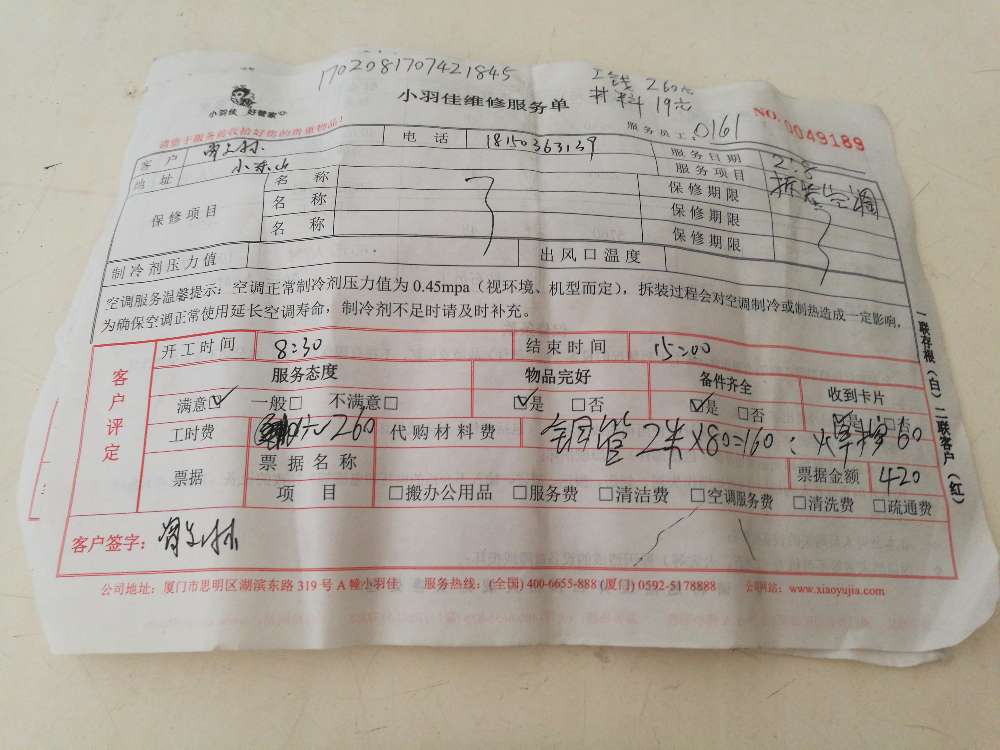 1702081707421845
工钱 260元
材料 19元
小羽佳 好管家
小羽佳维修服务单
服务员工 0161
NO. 0049189
请您于服务前收拾好您的贵重物品!
客户 电话 18150363139 服务日期 2.8
地址 小东山 服务项目 拆装空调
保修项目 名称 保修期限
名称 保修期限
名称 保修期限
制冷剂压力值 出风口温度
空调服务温馨提示:空调正常制冷剂压力值为 0.45mpa(视环境、机型而定),拆装过程会对空调制冷或制热造成一定影响,
为确保空调正常使用延长空调寿命,制冷剂不足时请及时补充。
客户评定
开工时间 8:30 结束时间 15:00
服务态度 物品完好 备件齐全 收到卡片
满意☑ 一般□ 不满意□ ☑是 □否 ☑是 □否 ☑是 □否
工时费 260 代购材料费 铜管2米×80=160;焊接60
票据 票据名称 票据金额 420
项目 □搬办公用品 □服务费 □清洁费 □空调服务费 □清洗费 □疏通费
客户签字:
一联存根(白)二联客户(红)
公司地址:厦门市思明区湖滨东路 319 号 A 幢小羽佳 服务热线:(全国) 400-6655-888 (厦门) 0592-5178888 公司网站:www.xiaoyujia.com